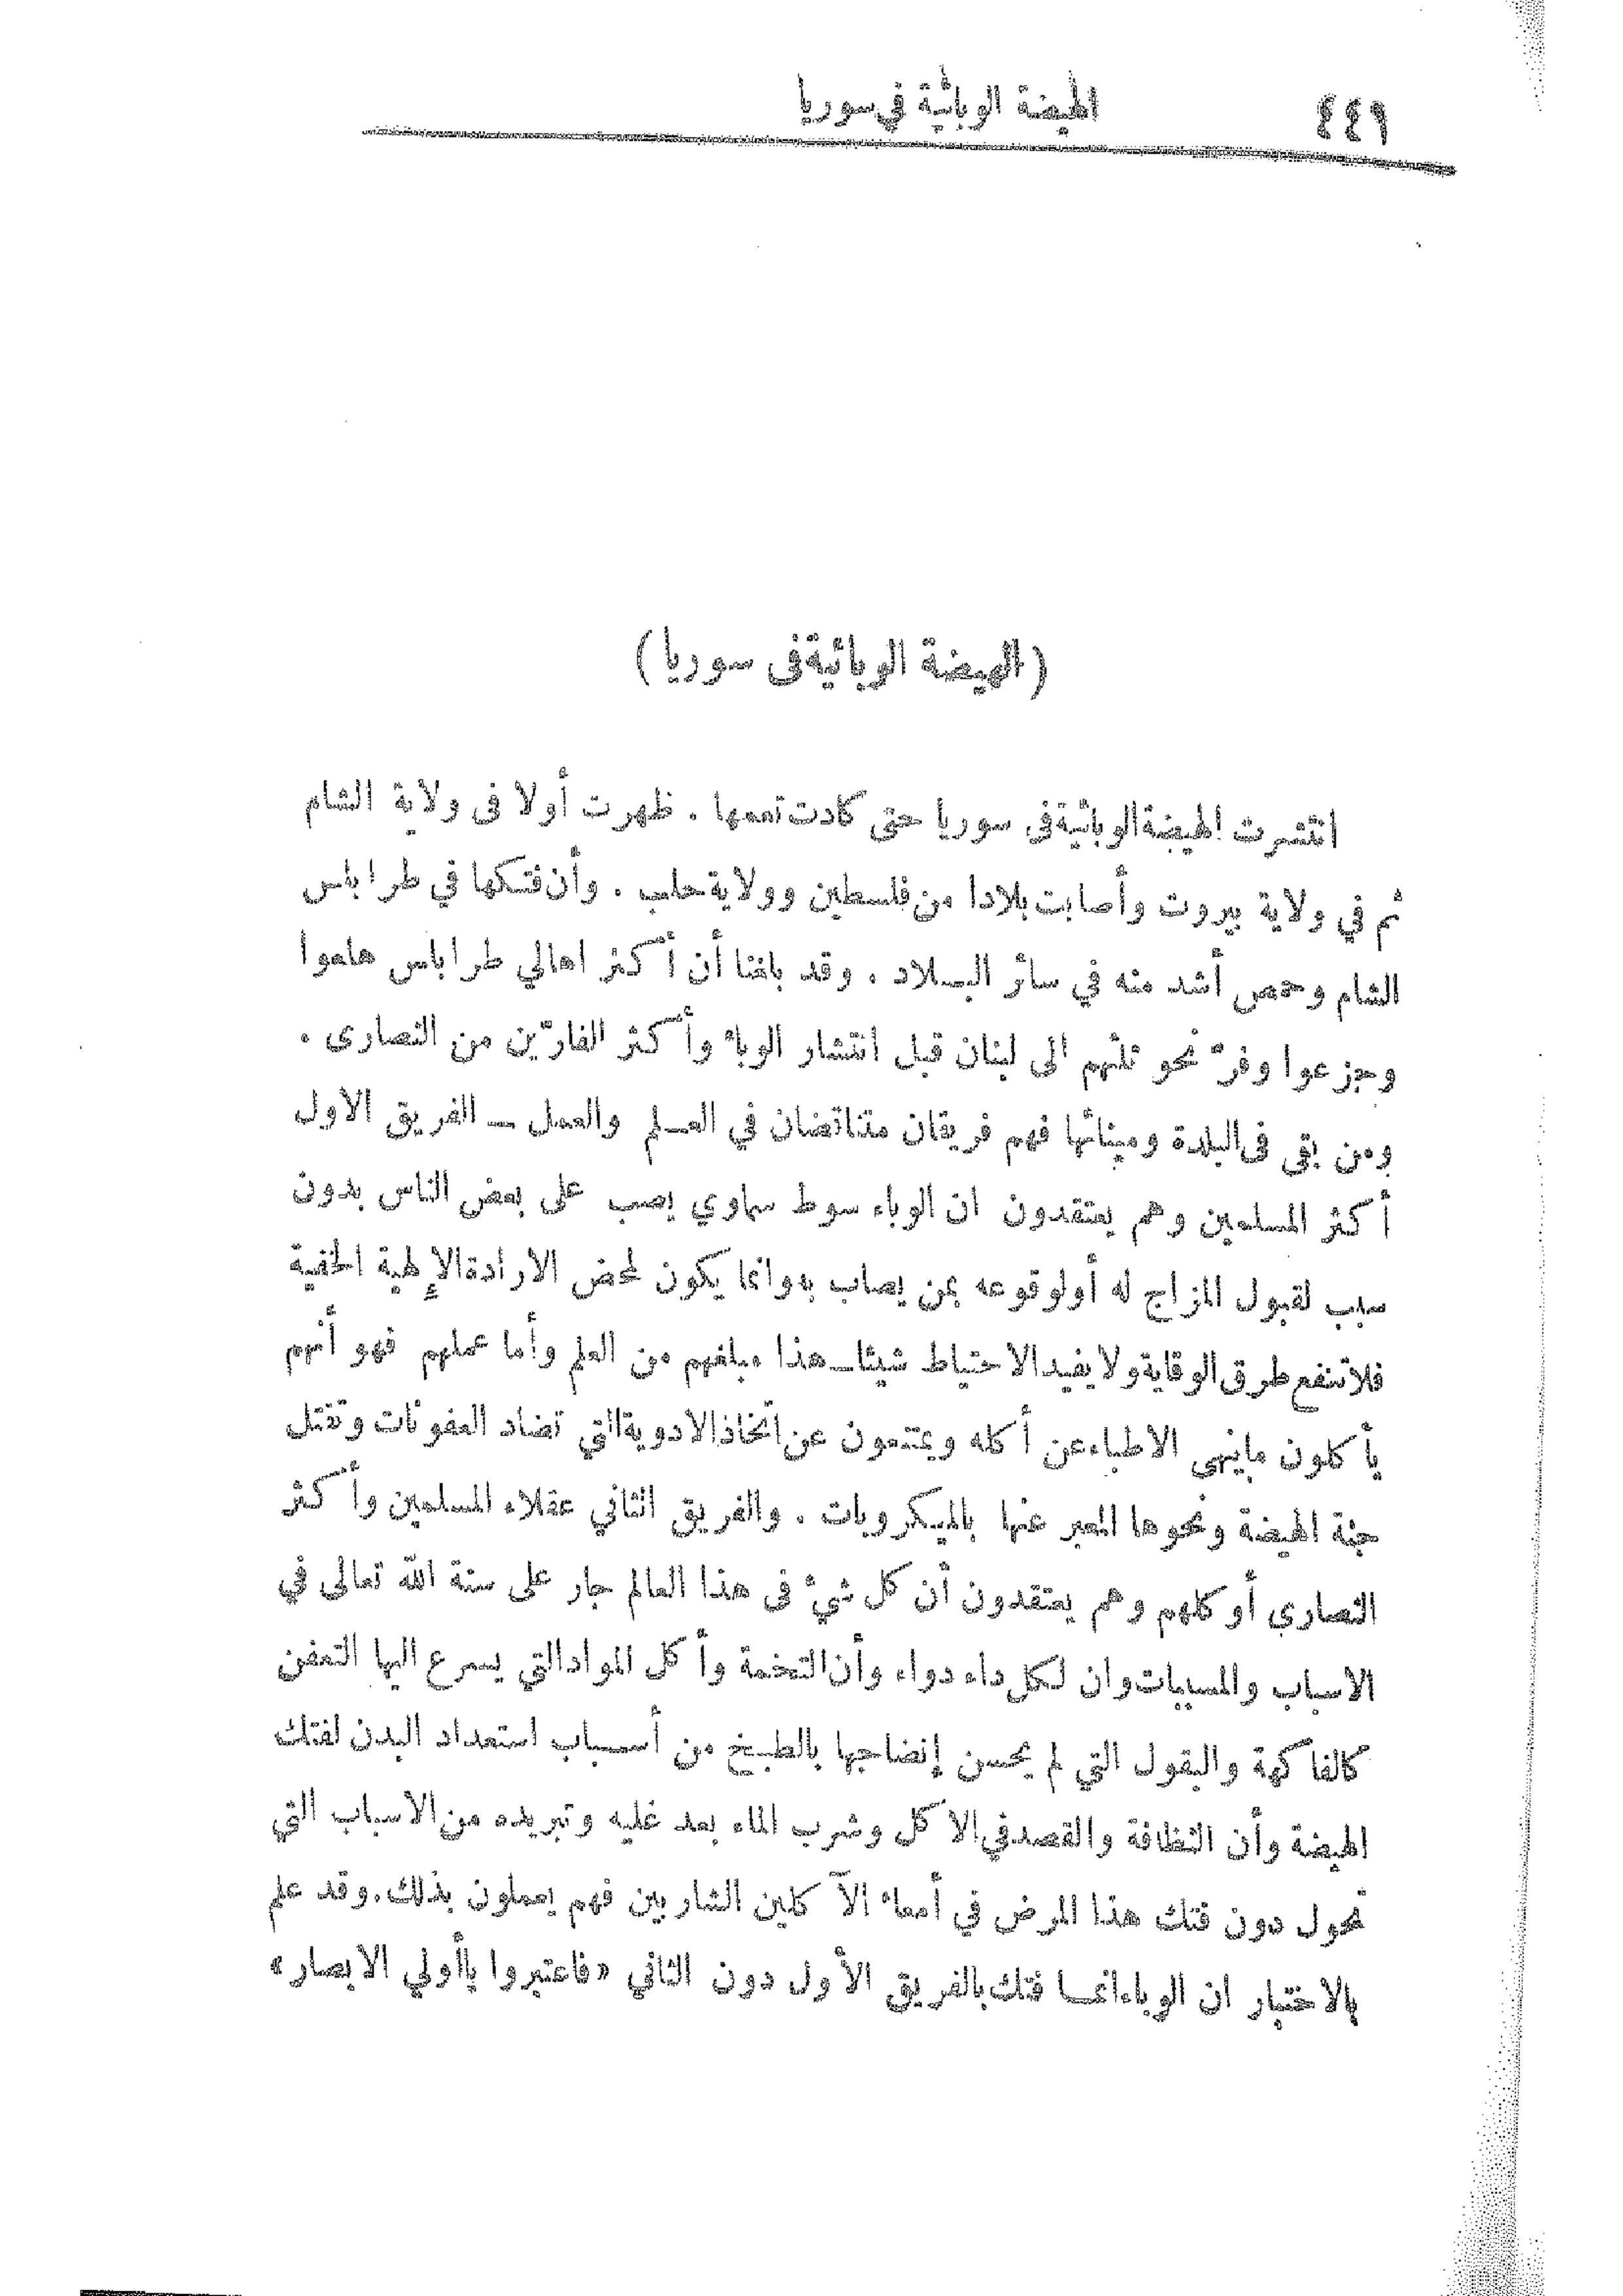 ٤٤٩ الهيضة الوبائية في سوريا
(الهيضة الوبائية فى سوريا)
انتشرت الهيضة الوبائية فى سوريا حتى كادت تعمها . ظهرت أولا فى ولاية الشام
ثم في ولاية بيروت وأصابت بلادا من فلسطين وولاية حلب . وأن فتكها في طرابلس
الشام وحمص أشد منه في سائر البلاد . وقد بلغنا أن أكثر اهالي طرابلس هلعوا
وجزعوا وفرّ نحو ثلثهم الى لبنان قبل انتشار الوباء وأكثر الفارّين من النصارى .
ومن بقى فى البلدة ومينائها فهم فريقان متناقضان في العلم والعمل — الفريق الاول
أكثر المسلمين وهم يعتقدون ان الوباء سوط سماوي يصب على بعض الناس بدون
سبب لقبول المزاج له أولوقوعه بمن يصاب به وانما يكون لمحض الارادة الإلهية الخفية
فلا تنفع طرق الوقاية ولا يفيد الاحتياط شيئا — هذا مبلغهم من العلم وأما عملهم فهو أنهم
يأكلون ماينهى الاطباء عن أكله ويمتنعون عن اتخاذ الادوية التي تضاد العفونات وتقتل
جنة الهيضة ونحوها المعبر عنها بالميكروبات . والفريق الثاني عقلاء المسلمين وأكثر
النصارى أو كلهم وهم يعتقدون أن كل شيء فى هذا العالم جار على سنة الله تعالى في
الاسباب والمسببات وان لكل داء دواء وأن التخمة وأكل المواد التي يسرع اليها التعفن
كالفاكهة والبقول التي لم يحسن إنضاجها بالطبخ من أسباب استعداد البدن لفتك
الهيضة وأن النظافة والقصد في الاكل وشرب الماء بعد غليه وتبريده من الاسباب التي
تحول دون فتك هذا المرض في أمعاء الآكلين الشاربين فهم يعملون بذلك . وقد علم
بالاختبار ان الوباء انما فتك بالفريق الأول دون الثاني «فاعتبروا ياأولي الابصار»